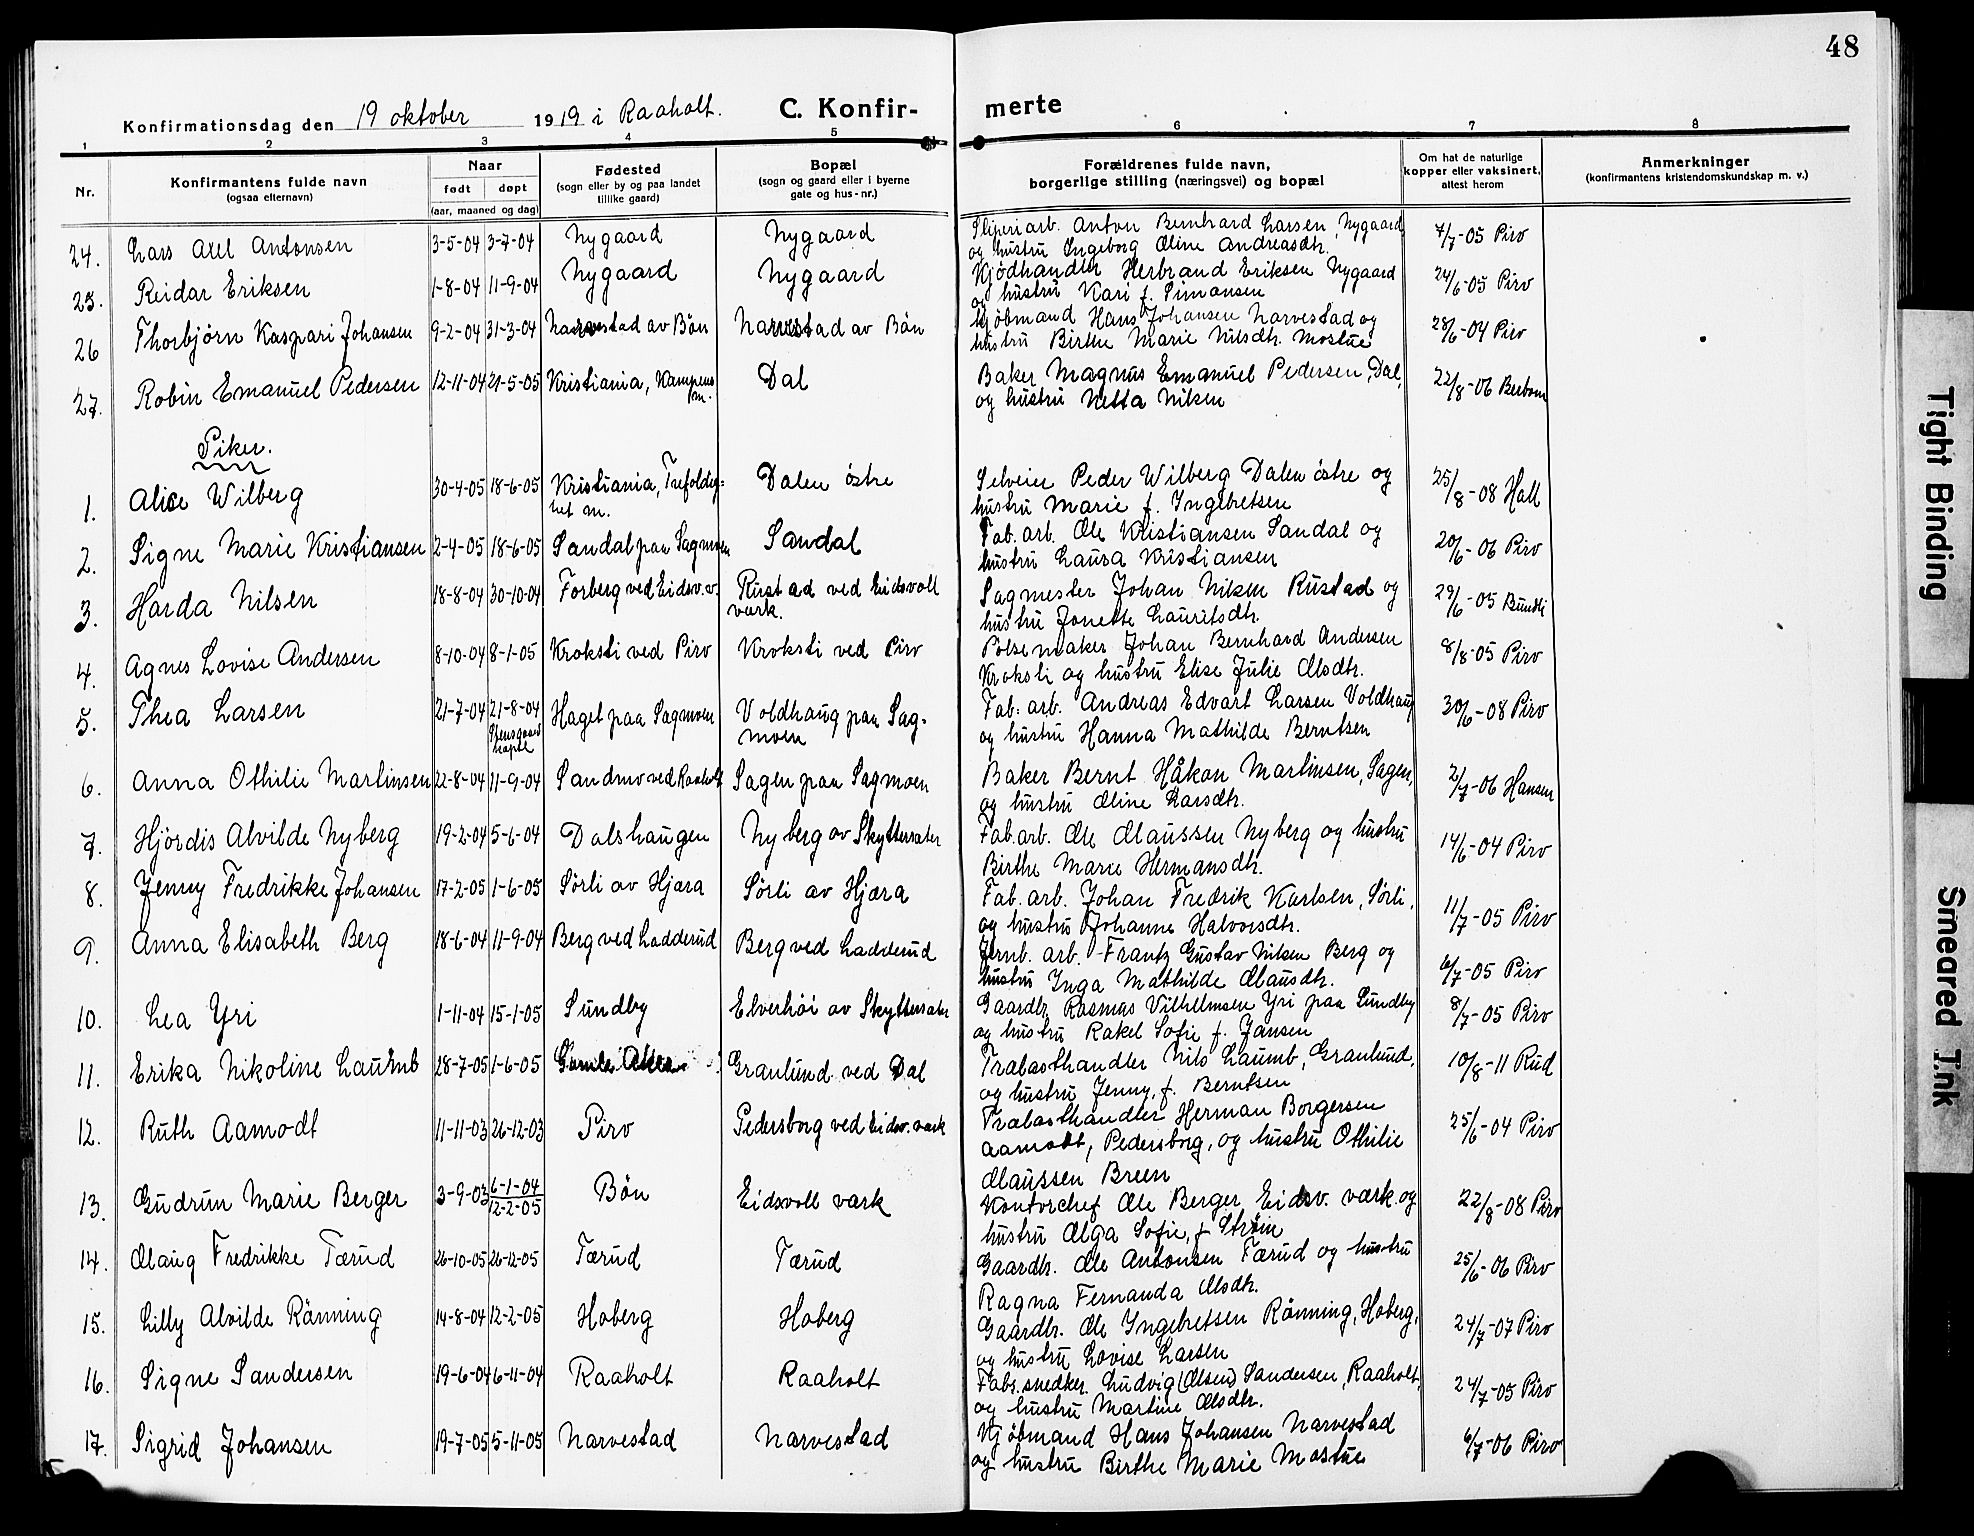 48
Konfirmationsdag den 19 oktober 1919 i Raaholt. C. Konfir- merte
1 2 3 4 5 6 7 8
Nr. Konfirmantens fulde navn (ogsaa efternavn) Naar født døpt (aar, maaned og dag) Fødested (sogn eller by og paa landet tillike gaard) Bopæl (sogn og gaard eller i byerne gate og hus-nr.) Forældrenes fulde navn, borgerlige stilling (næringsvei) og bopæl Om hat de naturlige kopper eller vaksinert, attest herom Anmerkninger (konfirmantens kristendomskundskap m. v.)
24. Lars Axel Antonsen 3-5-04 3-7-04 Nygaard Nygaard Sliperiarb. Anton Bernhard Larsen, Nygaard, 7/7-05 Pirv
og hustru Ingeborg Oline Andreasdtr.
25. Reidar Eriksen 1-8-04 11-9-04 Nygaard Nygaard Kjødhandler Herbrand Eriksen Nygaard 24/6-05 Pirv
og hustru Kari f. Simonsen
26 Thorbjørn Kaspari Johansen 9-2-04 31-3-04 Narvestad av Bøn Narvestad av Bøn Kjøbmand Hans Johansen Narvestad og 28/6-04 Pirv
hustru Birthe Marie Nilsdtr. Mostue
27. Robin Emanuel Pedersen 12-11-04 21-5-05 Kristiania, Kampens m. Dal Baker Magnus Emanuel Pedersen, Dal, 22/8-06
og hustru Netta Nilsen
Piker.
1. Alice Wilberg 30-4-05 18-6-05 Kristiania, Trefoldig= Dalen østre Selveier Peder Wilberg Dalen østre og 25/8-08 Hall
het m. hustru Marie f. Ingebretsen
2. Signe Marie Kristiansen 2-4-05 18-6-05 Sandal paa Sagmoen Sandal Fab. arb. Ole Kristiansen Sandal og 20/6-06 Pirv
hustru Laura Kristiansen
3. Harda Nilsen 18-8-04 30-10-04 Forberg ved Eidsv. v. Rustad ved Eidsvoll Sagmester Johan Nilsen Rustad og 29/6-05 Bundli
værk. hustru Jonette Lauritsdtr.
4. Agnes Lovise Andersen 8-10-04 8-1-05 Kroksti ved Pirv Kroksti ved Pirv Pølsemaker Johan Bernhard Andersen 8/8-05 Pirv
Kroksti og hustru Elise Julie Olsdtr.
5. Thea Larsen 21-7-04 21-8-04 Haget paa Sagmoen Voldhaug paa Sag- Fab. arb. Andreas Edvart Larsen Voldhaug 30/6-08 Pirv
moen og hustru Hanna Mathilde Berntsen
6. Anna Othilie Martinsen 22-8-04 11-9-04 Sandmo ved Raaholt Sagen paa Sagmoen Baker Bernt Håkon Martinsen, Sagen, 2/7-06 Hansen
og hustru Oline Larsdtr.
7. Hjørdis Alvilde Nyberg 19-2-04 5-6-04 Dalshaugen Nyberg av Skyttersæter Fab. arb. Ole Olaussen Nyberg og hustru 14/6-04 Pirv
Birthe Marie Hermansdtr.
8. Jenny Fredrikke Johansen 17-2-05 1-6-05 Sørli av Hjæra Sørli av Hjæra Fab. arb. Johan Fredrik Karlsen, Sørli, 11/7-05 Pirv
og hustru Johanne Halvorsdtr.
9. Anna Elisabeth Berg 18-6-04 11-9-04 Berg ved Ladderud Berg ved Ladderud Jernb. arb. Frantz Gustav Nilsen Berg og 6/7-05 Pirv
hustru Inga Mathilde Olausdtr.
10. Lea Yri 1-11-04 15-1-05 Sundby Elverhøi av Skyttersæter Gaardbr. Rasmus Vilhelmsen Yri paa Sundby 8/7-05 Pirv
og hustru Rakel Sofie f. Jansen
11. Erika Nikoline Laumb 28-7-05 1-6-05 Gamle Granlund ved Dal Trælasthandler Nils Laumb, Granlund, 10/8-11 Rud
og hustru Jenny, f. Berntsen
12. Ruth Aamodt 11-11-03 26-12-03 Pirv Pedersborg ved Eidsv. værk Trælasthandler Herman Borgersen 25/6-04 Pirv
Aamodt, Pedersborg, og hustru Othilie
Olaussen Breen
13. Gudrun Marie Berger 3-9-03 6-1-04 12-2-05 Bøn Eidsvoll værk Kontorchef Ole Berger, Eidsv. værk og 22/8-08 Pirv
hustru Olga Sofie, f. Strøm
14. Olaug Fredrikke Tærud 26-10-05 26-12-05 Tærud Tærud Gaardbr. Ole Antonsen Tærud og hustru 25/6-06 Pirv
Ragna Fernanda Olsdtr.
15. Lilly Alvilde Rønning 14-8-04 12-2-05 Hoberg Hoberg Gaardbr. Ole Ingebretsen Rønning, Hoberg, 24/7-07 Pirv
og hustru Lovise Larsen
16. Signe Sandersen 19-6-04 6-11-04 Raaholt Raaholt Fabr. snedker. Ludvig (Olsen) Sandersen, Raaholt, 24/7-05 Pirv
og hustru Martine Olsdtr.
17. Sigrid Johansen 19-7-05 5-11-05 Narvestad Narvestad Kjøbmand Hans Johansen Narvestad 6/7-06 Pirv
og hustru Birthe Marie Mostue
Tight Binding
Smeared Ink